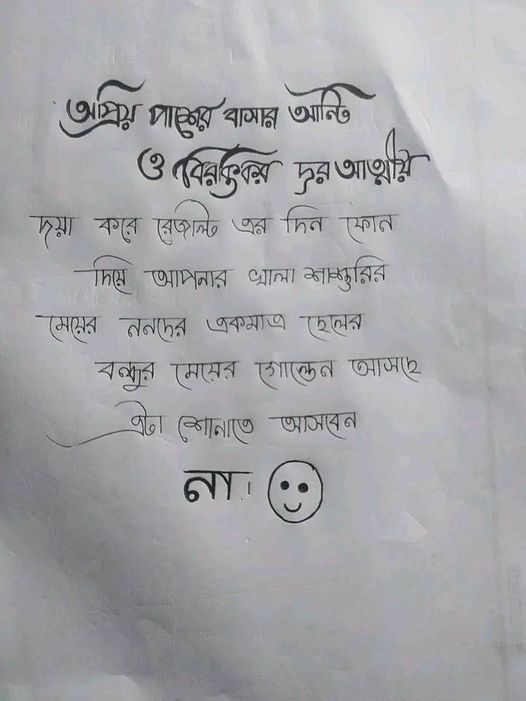 অপ্রিয় পাশের বাসার আন্টি
ও বিরক্তিকর দূর আত্মীয়
দয়া করে রেজাল্ট এর দিন ফোন
দিয়ে আপনার খালা শাশুরির
মেয়ের ননদের একমাত্র ছেলের
বন্ধুর মেয়ের গোল্ডেন আসছে
এটা শোনাতে আসবেন
না।